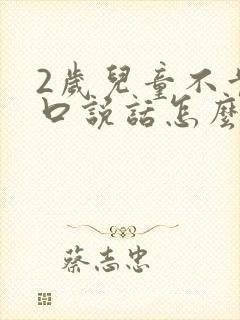 2歲兒童不
口說話怎麼
蔡志忠